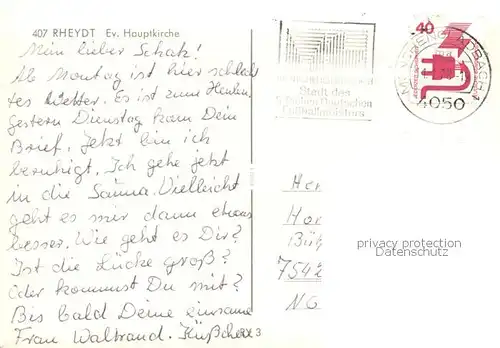 407 RHEYDT Ev. Hauptkirche
Mein lieber Schatz!
Ab Montag ist hier schlech
tes Wetter. Es ist zum Heulen.
gestern Dienstag kam Dein
Brief. Jetzt bin ich
beruhigt. Ich gehe jetzt
in die Sauna. Vielleicht
geht es mir dann etwas
besser. Wie geht es Dir?
Ist die Lücke groß?
Oder kommst Du mit?
Bis bald Deine einsame
Frau Waltraud. Küßchen
40
MÖNCHENGLADBACH 1
4050
Stadt des
5 fachen Deutschen
Fußballmeisters
Her
Han
Bü
7542
privacy protection
Datenschutz